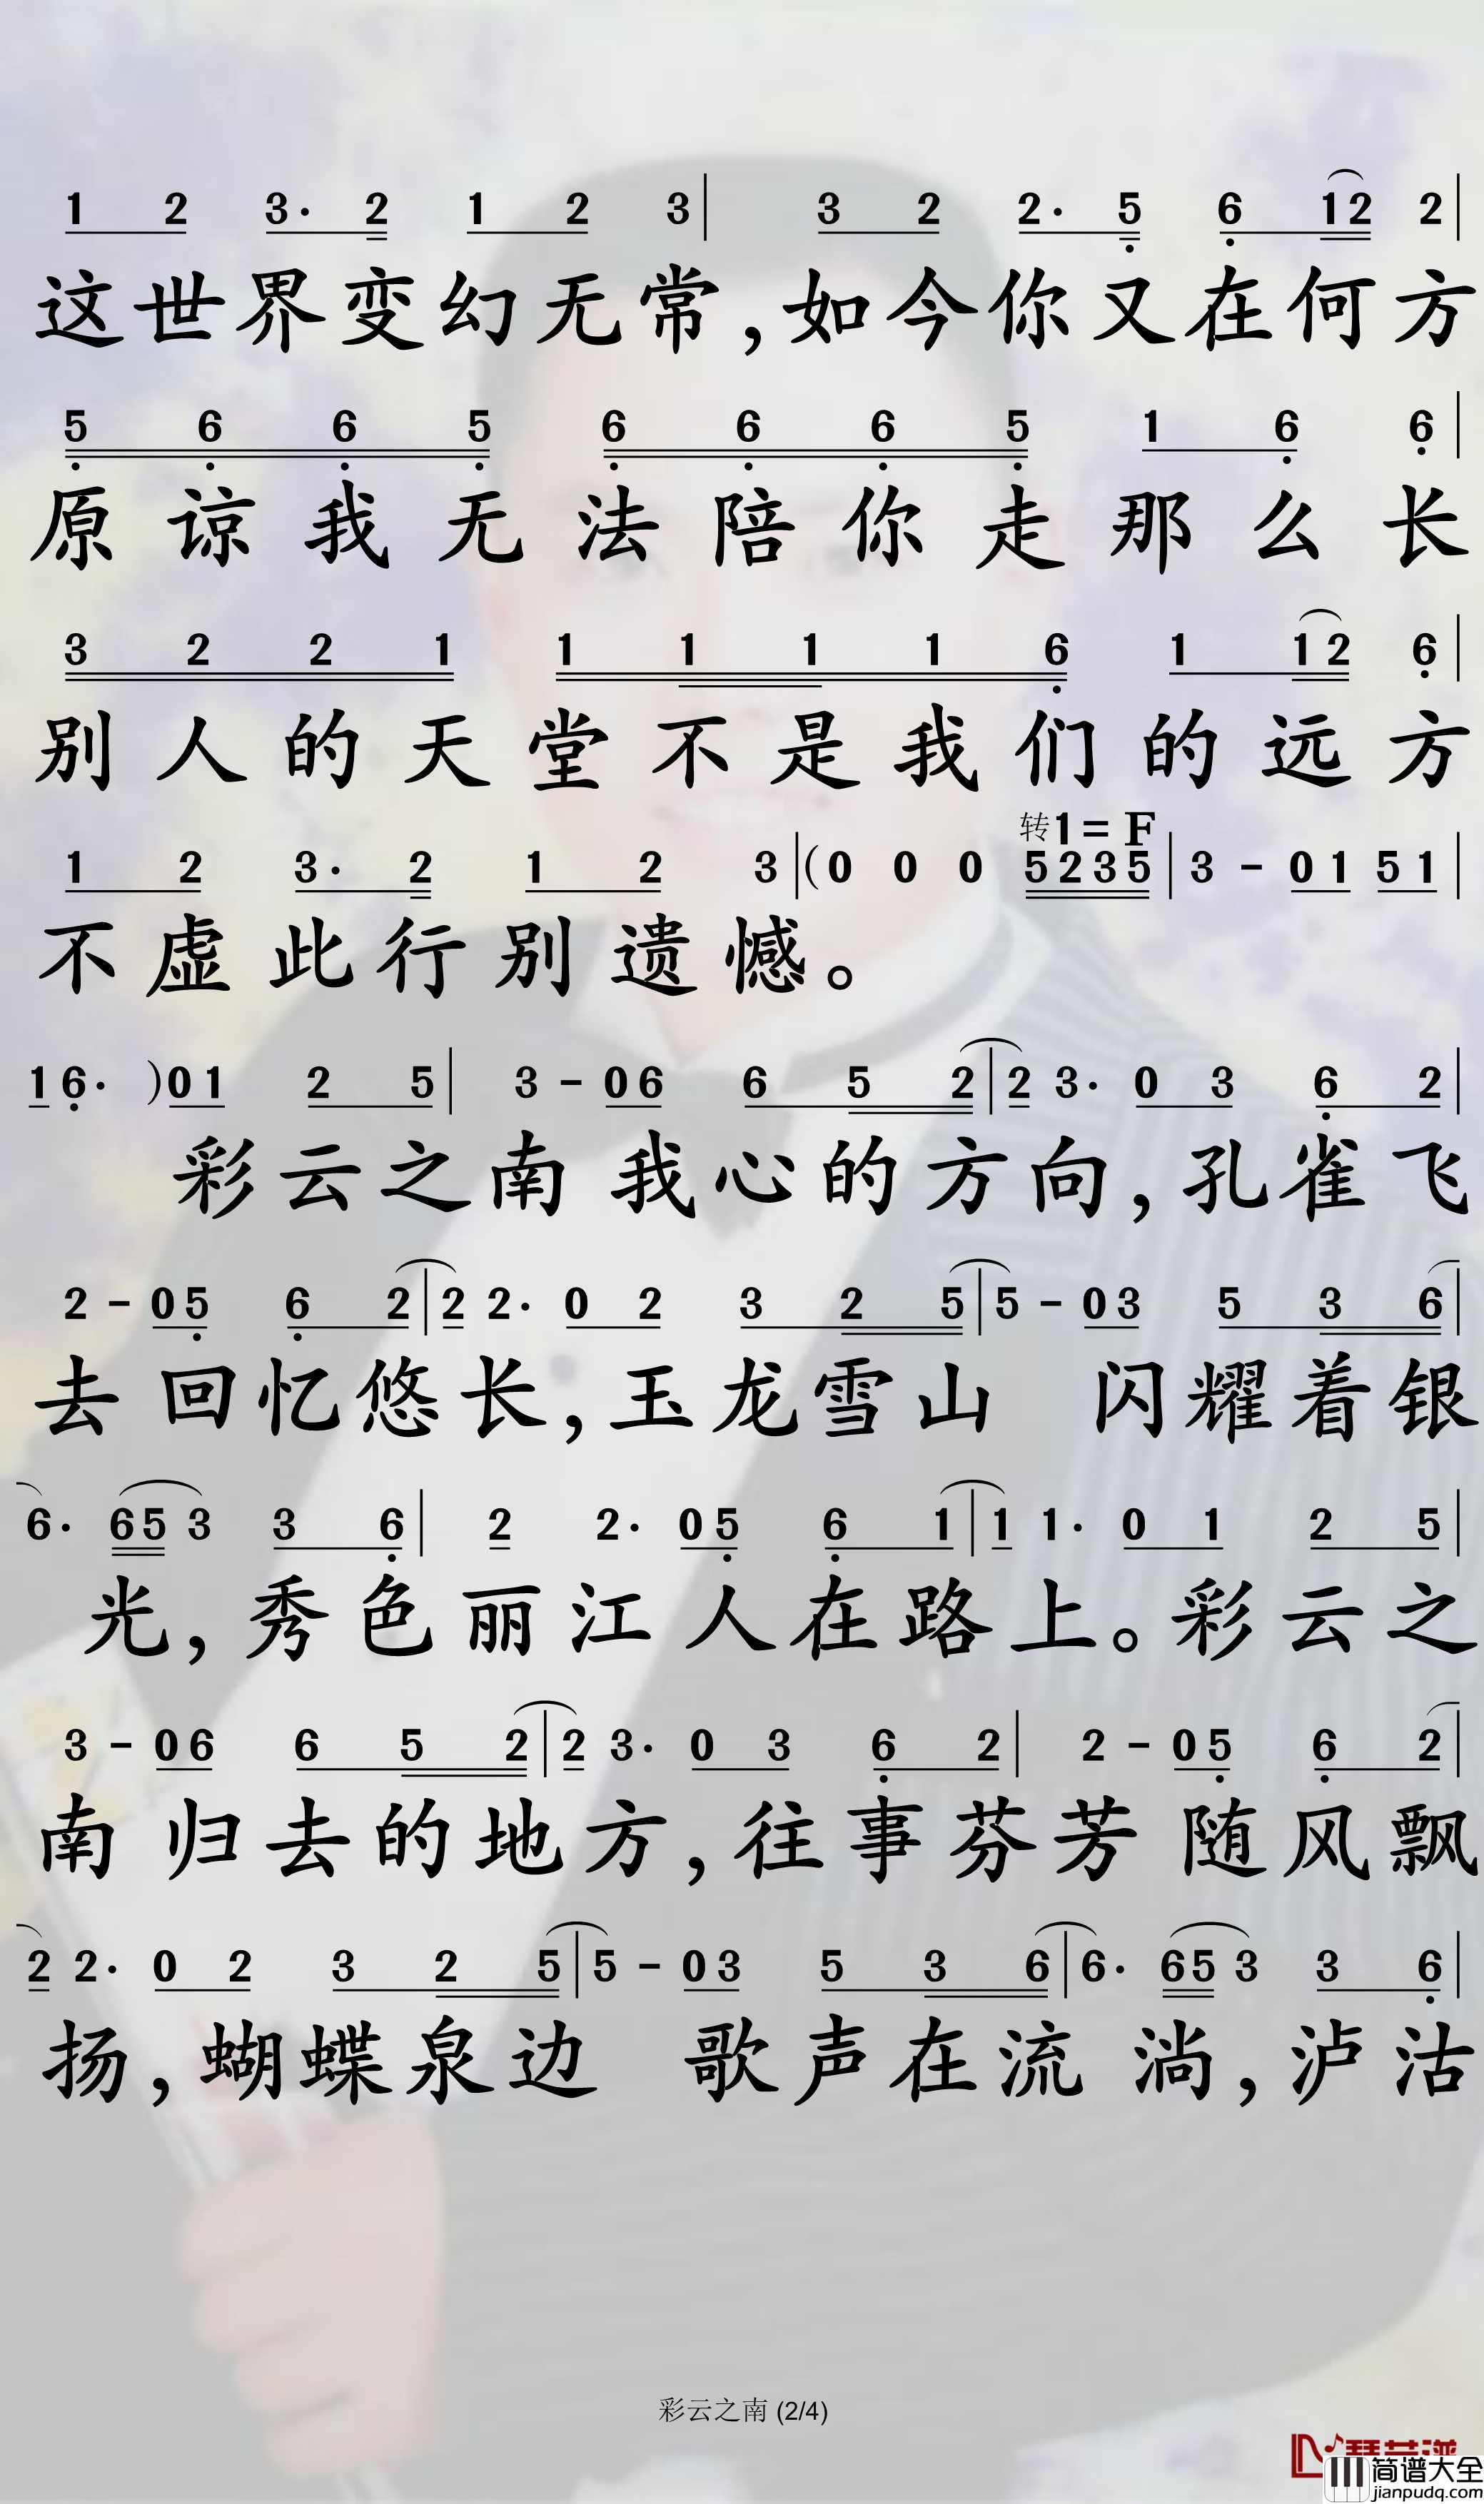 1 2 3· 2 1 2 3| 3 2 2· 5 6 12 2|
这世界变幻无常,如今你又在何方
5 6 6 5 6 6 6 5 1 6 6|
原谅我无法陪你走那么长
3 2 2 1 1 1 1 1 6 1 12 6|
别人的天堂不是我们的远方
转1=F
1 2 3· 2 1 2 3|(0 0 0 5235|3 - 01 51|
不虚此行别遗憾。
16· )01 2 5| 3 - 06 6 5 2|2 3· 0 3 6 2|
彩云之南 我心的方向,孔雀飞
2 - 05 6 2|2 2· 0 2 3 2 5|5 - 03 5 3 6|
去 回忆悠长,玉龙雪山 闪耀着银
6· 65 3 3 6| 2 2· 05 6 1|1 1· 0 1 2 5|
光,秀色丽江人在路上。彩云之
3 - 06 6 5 2|2 3· 0 3 6 2| 2 - 05 6 2|
南 归去的地方,往事芬芳 随风飘
2 2· 0 2 3 2 5|5 - 03 5 3 6|6· 65 3 3 6|
扬,蝴蝶泉边 歌声在流 淌,泸沽
彩云之南 (2/4)
简谱大全
jianpudq.com